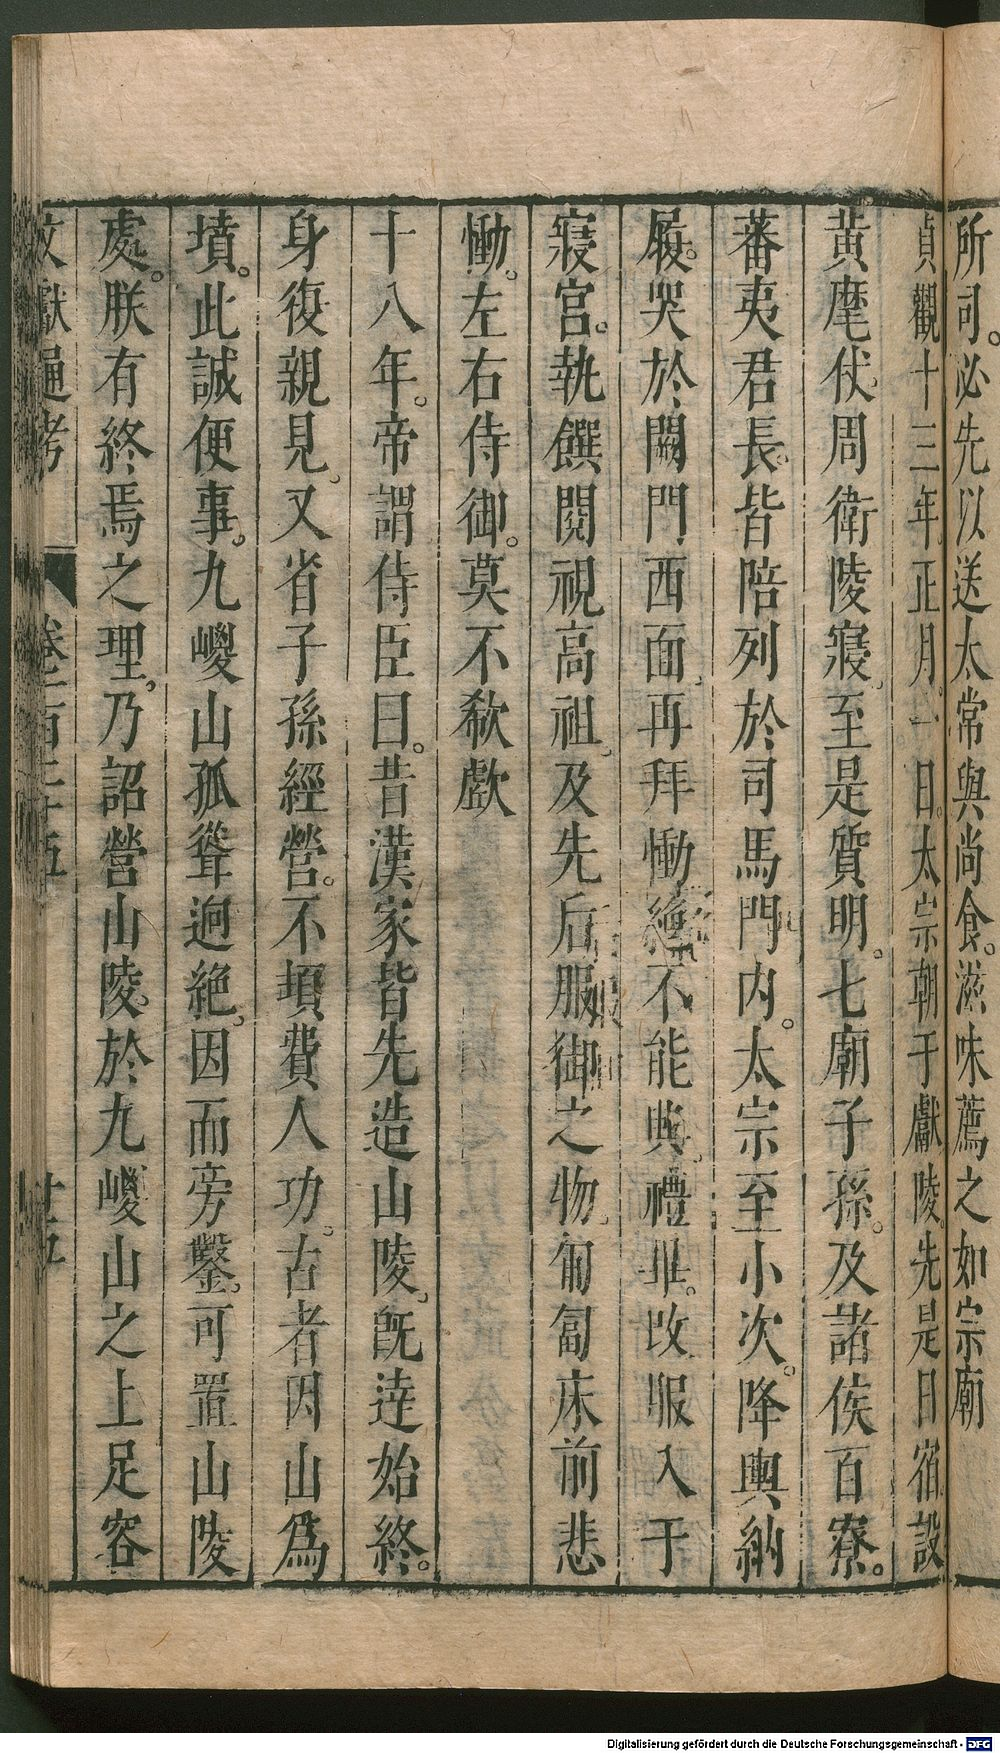 所司。必先以送太常與尚食。滋味薦之如宗廟
貞觀十三年。正月。一日。太宗朝于獻陵。先是日宿設
黃麾仗。周衛陵寢。至是質明。七廟子孫。及諸侯百寮。
蕃夷君長。皆陪列於司馬門內。太宗至小次。降輿納
履。哭於闕門。西面。再拜慟絶不能興。禮畢。改服入于
寢宮。執饌閱視高祖。及先后服御之物。匍匐床前悲
慟。左右侍御。莫不欷歔
十八年。帝謂侍臣曰。昔漢家皆先造山陵。旣達始終。
身復親見。又省子孫經營。不煩費人功。古者因山爲
墳。此誠便事。九嵕山孤聳迥絶。因而旁鑿。可置山陵
處。朕有終焉之理。乃詔營山陵。於九嵕山之上足容
文獻通考 卷一百二十五 十五
Digitalisierung gefördert durch die Deutsche Forschungsgemeinschaft - DFG